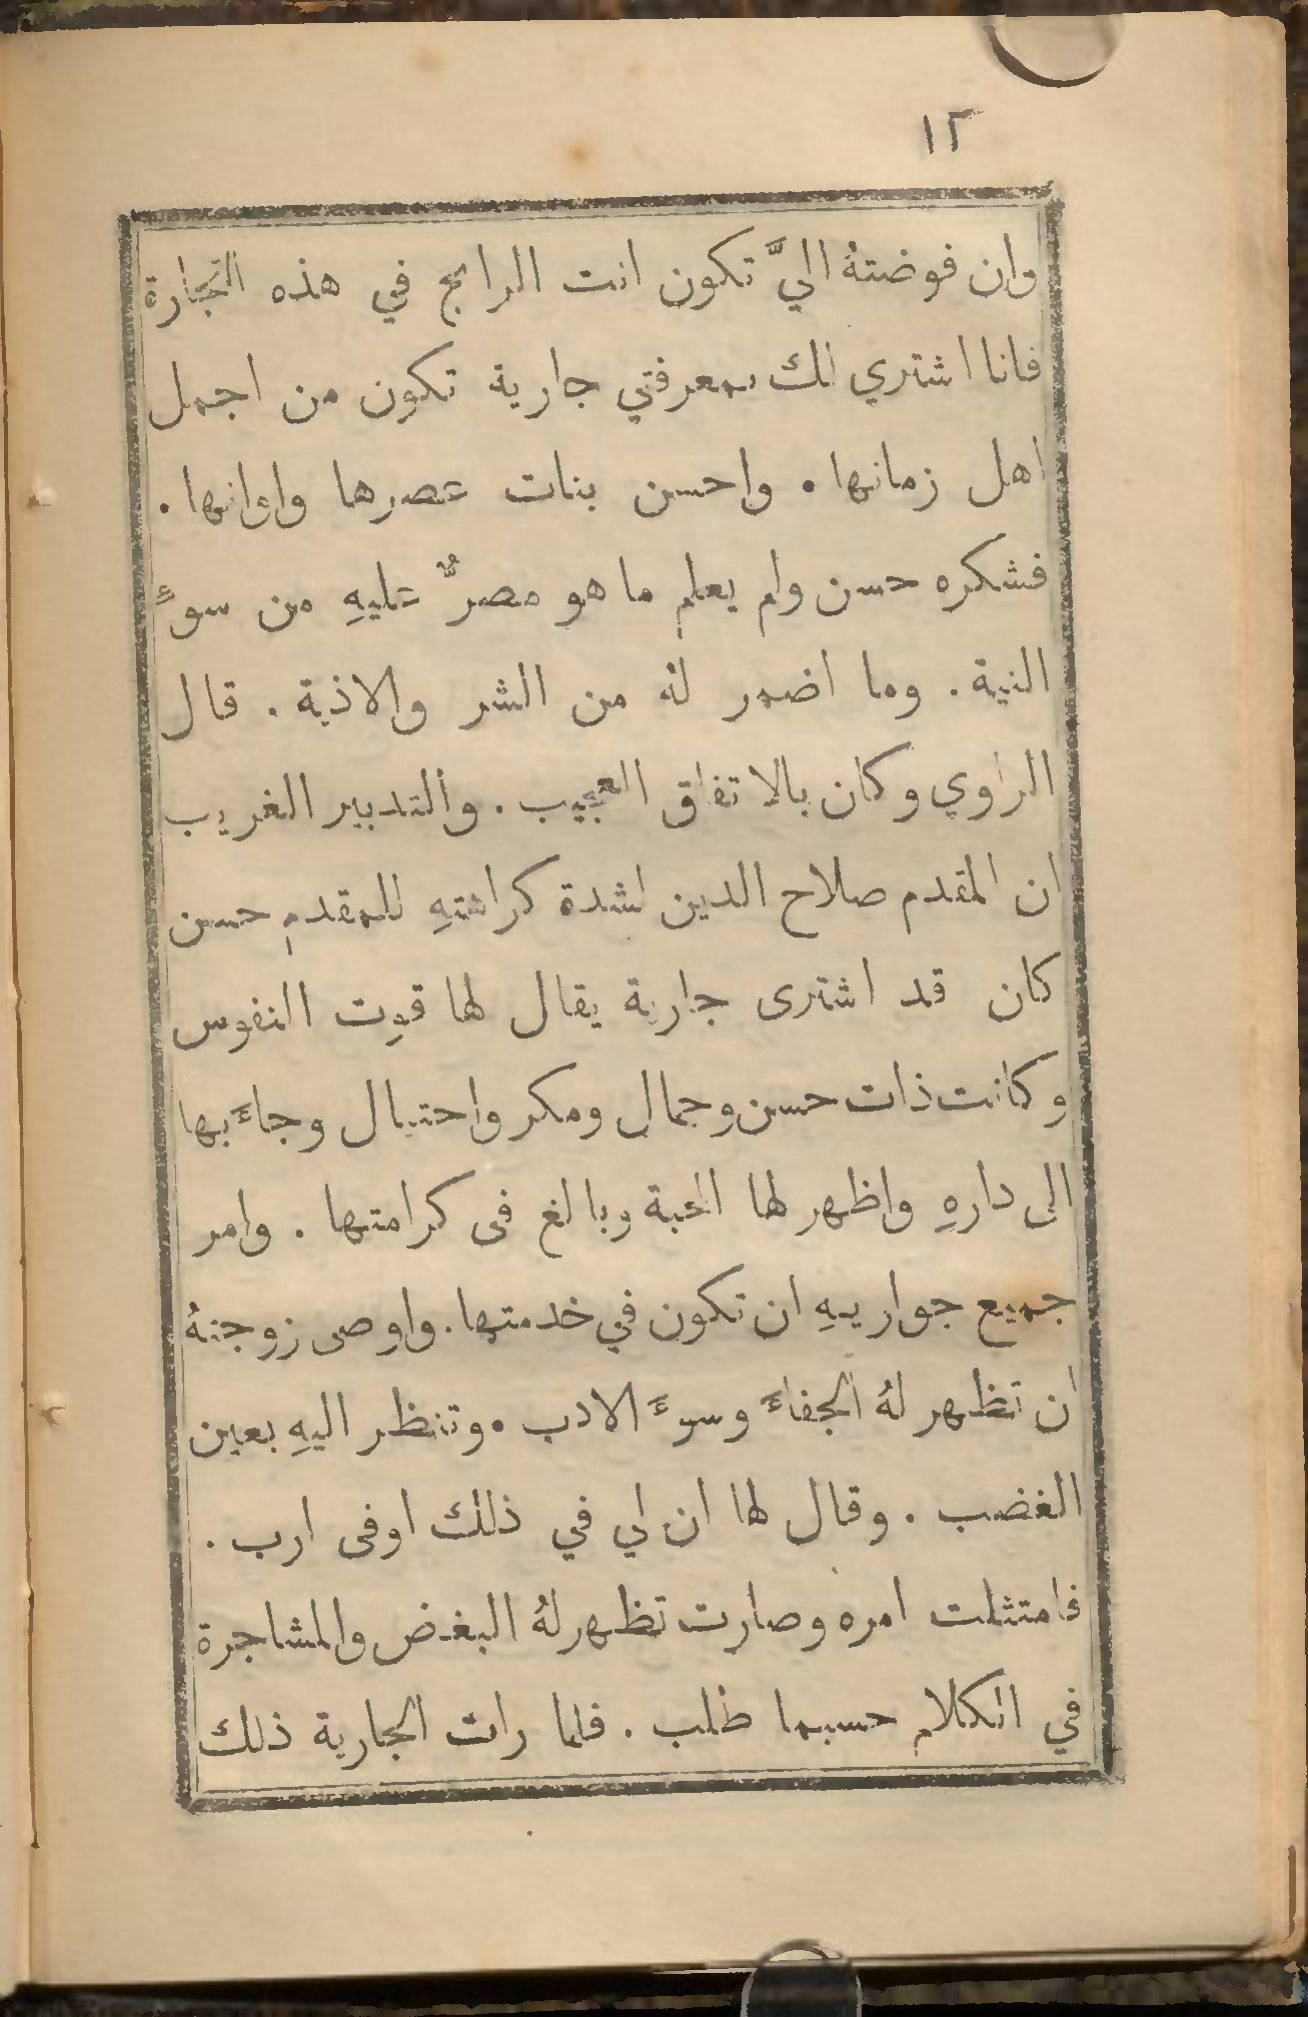 ١٢
وان فوضتهُ اليَّ تكون انت الرابح في هذه التجارة
فانا اشتري لك بمعرفتي جارية تكون من اجمل
اهل زمانها . واحسن بنات عصرها واوانها .
فشكره حسن ولم يعلم ما هو مصرٌّ عليهِ من سوءِ
النية . وما اضمر لهُ من الشر والاذية . قال
الراوي وكان بالاتفاق العجيب . والتدبير الغريب
ان المقدم صلاح الدين لشدة كراهتهِ للمقدم حسن
كان قد اشترى جارية يقال لها قوت النفوس
وكانت ذات حسن وجمال ومكر واحتيال وجاءَ بها
الى دارهِ واظهر لها المحبة وبالغ فى كرامتها . وامر
جميع جواريهِ ان تكون في خدمتها . واوصى زوجتهُ
ان تظهر لهُ الجفاءَ وسوءَ الادب . وتنظر اليهِ بعين
الغضب . وقال لها ان لي في ذلك اوفى ارب .
فامتثلت امره وصارت تظهر لهُ البغض والمشاجرة
في الكلام حسبما طلب . فلما رات الجارية ذلك